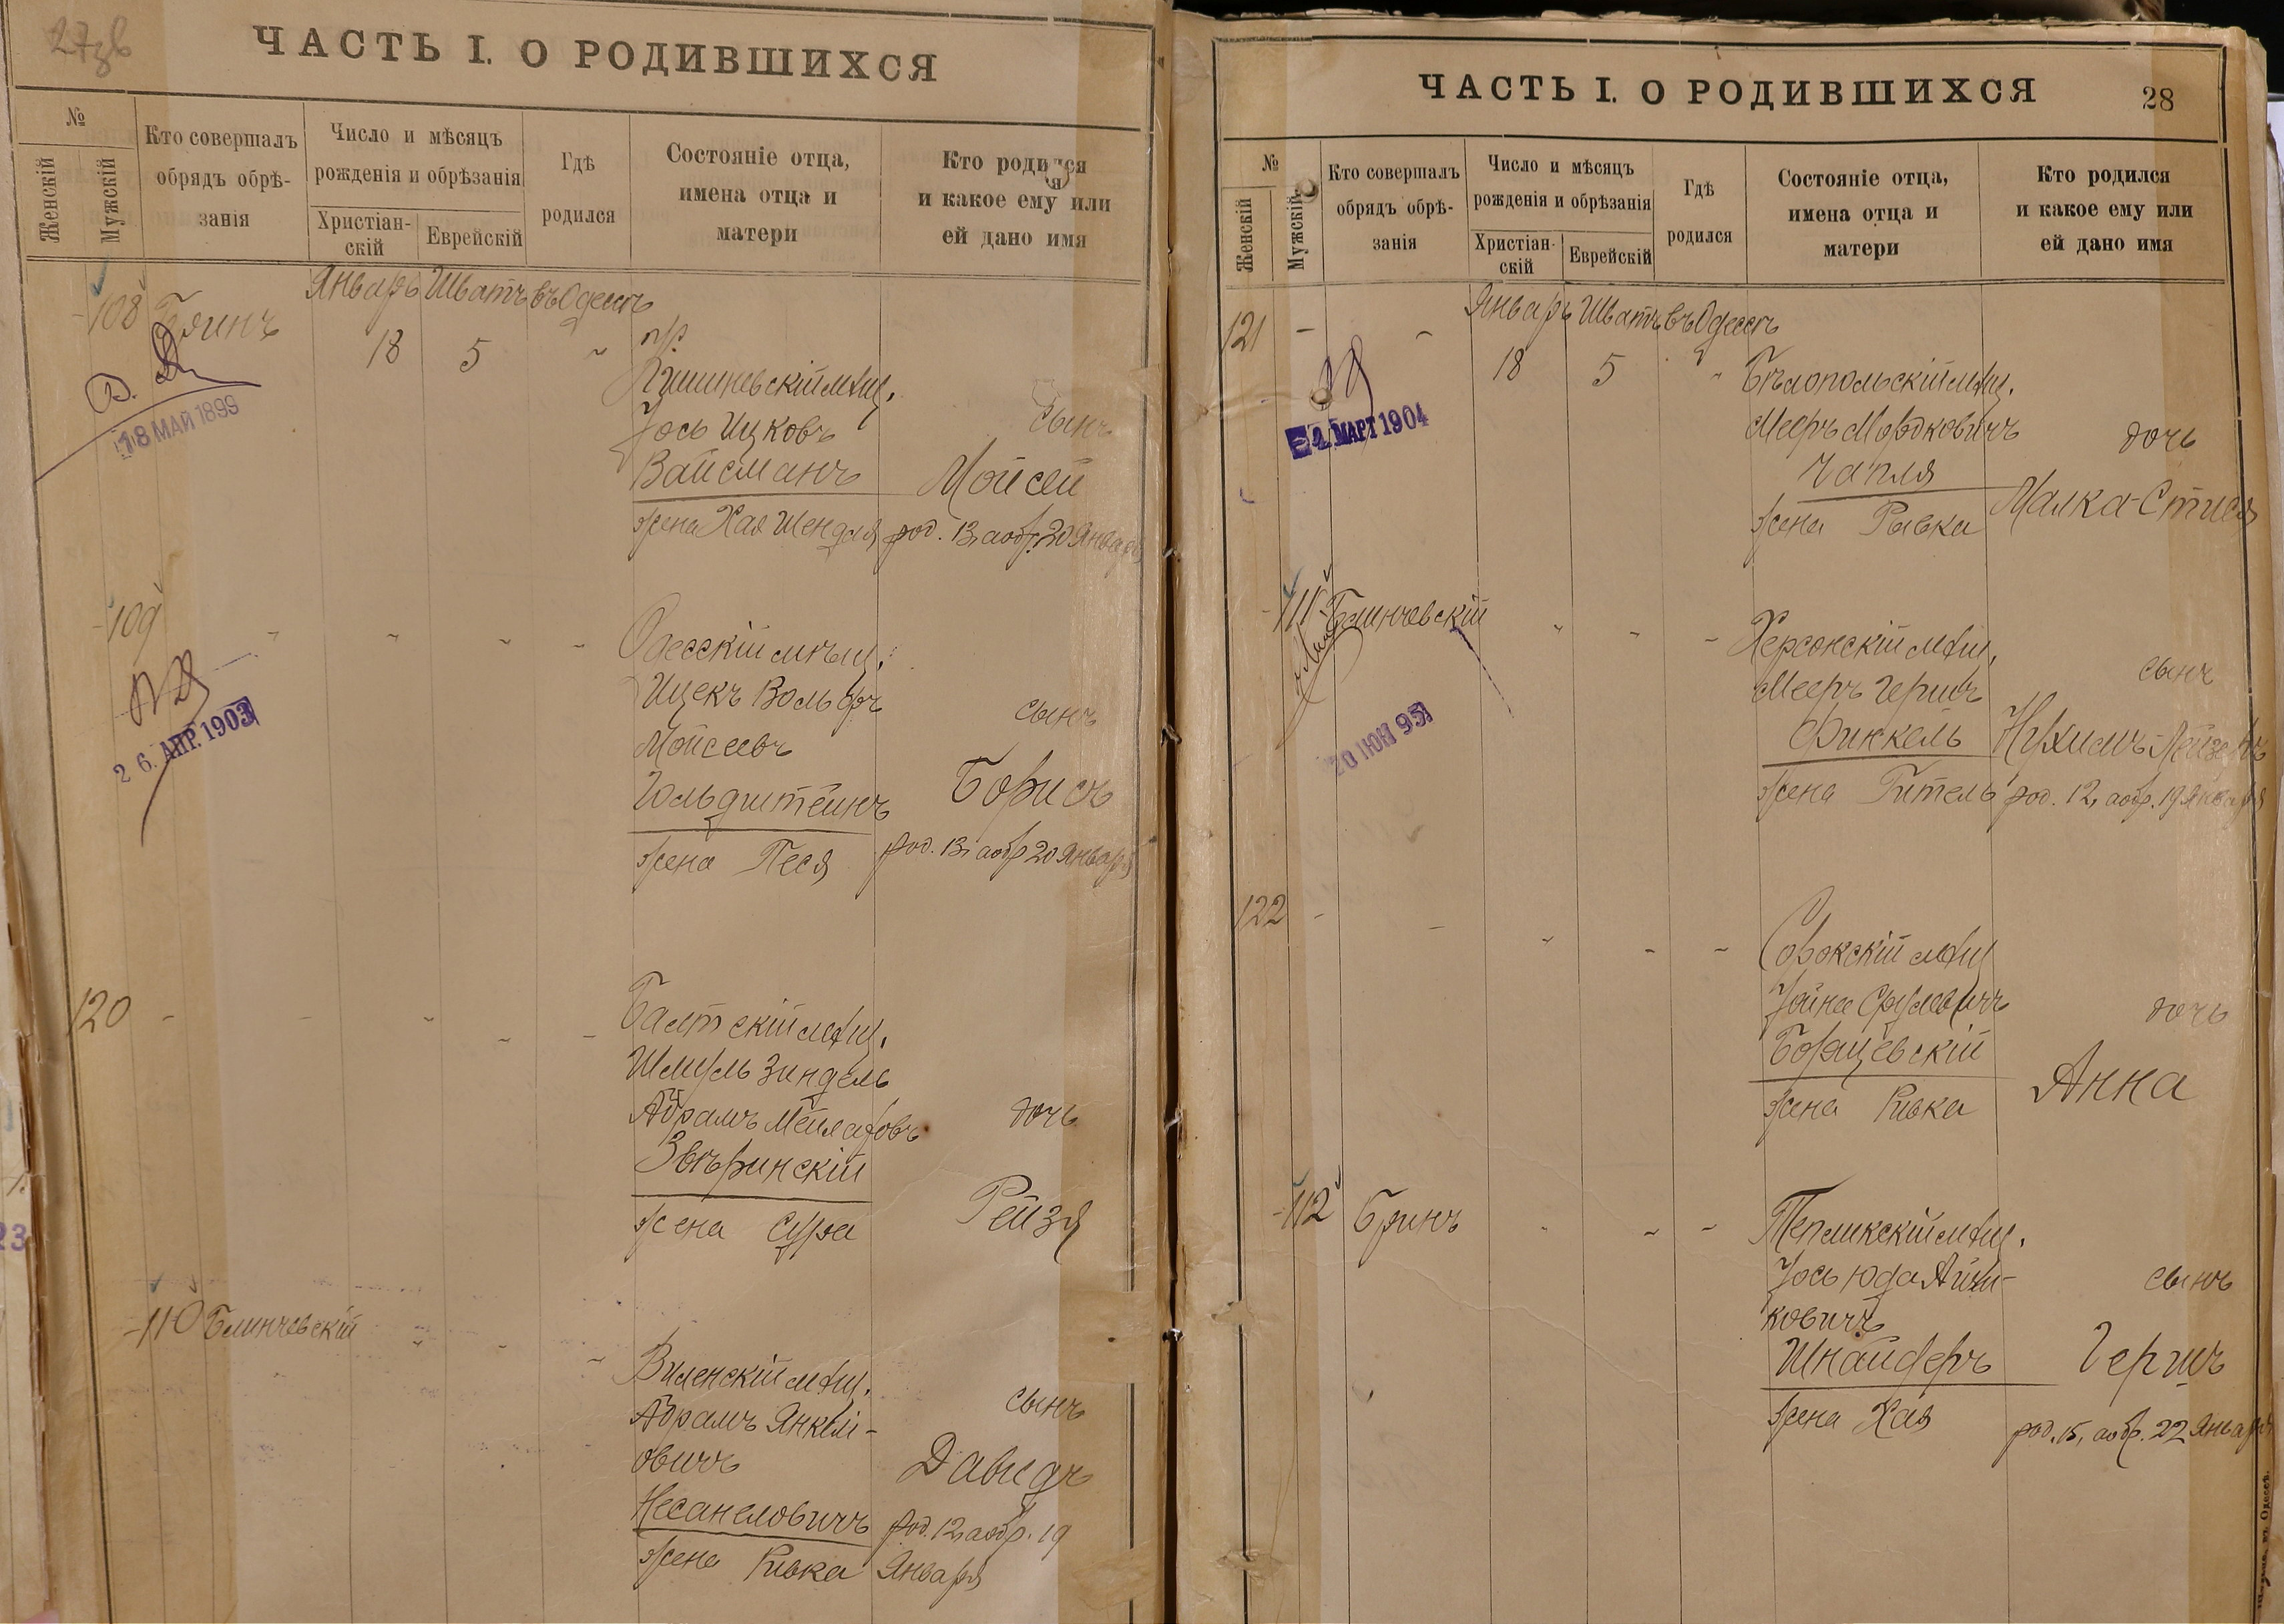 27зв
ЧАСТЬ I. О РОДИВШИХСЯ
№
Женскій
Мужскій
Кто совершалъ
обрядъ обрѣ-
занія
Число и мѣсяцъ
рожденія и обрѣзанія
Христіан-
скій
Еврейскій
Гдѣ
родился
Состояніе отца,
имена отца и
матери
Кто родился
и какое ему или
ей дано имя
Январь Шватъ въ Одессѣ
108 Бринъ
18 5 "
Кишиневскій мѣщ.
Іось Ицковъ
сынъ
Вайсманъ
Мойсей
жена Хая Шендля род. 13, а обр. 20 Января
18 МАЙ 1899
109 " " " "
Одесскій мѣщ.
Ицекъ Вольфъ
сынъ
Мойсеевъ
Гольдштейнъ
Борисъ
жена Песя род. 13, а обр 20 Января
2 6. АПР. 1903
120 - - " - -
Балтскій мѣщ.
Шмуль Зиндель
Абрамъ Мейлаховъ
дочь
Звѣринскій
жена Сура
Рейзя
110 Блинчевскій " " "
Виленскій мѣщ.
Абрамъ Янкел-
сынъ
овичъ
Давидъ
Несанеловичъ
род. 12, а обр. 19
жена Ривка Января
ЧАСТЬ I. О РОДИВШИХСЯ
28
№
Женскій
Мужскій
Кто совершалъ
обрядъ обрѣ-
занія
Число и мѣсяцъ
рожденія и обрѣзанія
Христіан-
скій
Еврейскій
Гдѣ
родился
Состояніе отца,
имена отца и
матери
Кто родился
и какое ему или
ей дано имя
Январь Шватъ въ Одессѣ
121 - -
18 5 "
Бѣлопольскій мѣщ.
Мееръ Мордковичъ
дочь
Чапля
Малка-Стися
жена Рывка
МАРТ 1904
111 Блинчевскій " " "
Херсонскій мѣщ.
Мееръ Герш
сынъ
Финкель
Нухимъ-Лейзеръ
жена Гитель род. 12, а обр. 19 Января
20 ЮН 95
122 - - " - "
Сорокскій мѣщ
Іойна Срулевичъ
дочь
Борщевскій
Анна
жена Ривка
112 Бринъ " " "
Тепликскій мѣщ.
Іось Юда Айзи-
сынъ
ковичъ
Шнайдеръ
Гершъ
жена Хая
род. 15, а обр. 22 Января
въ Одессѣ.